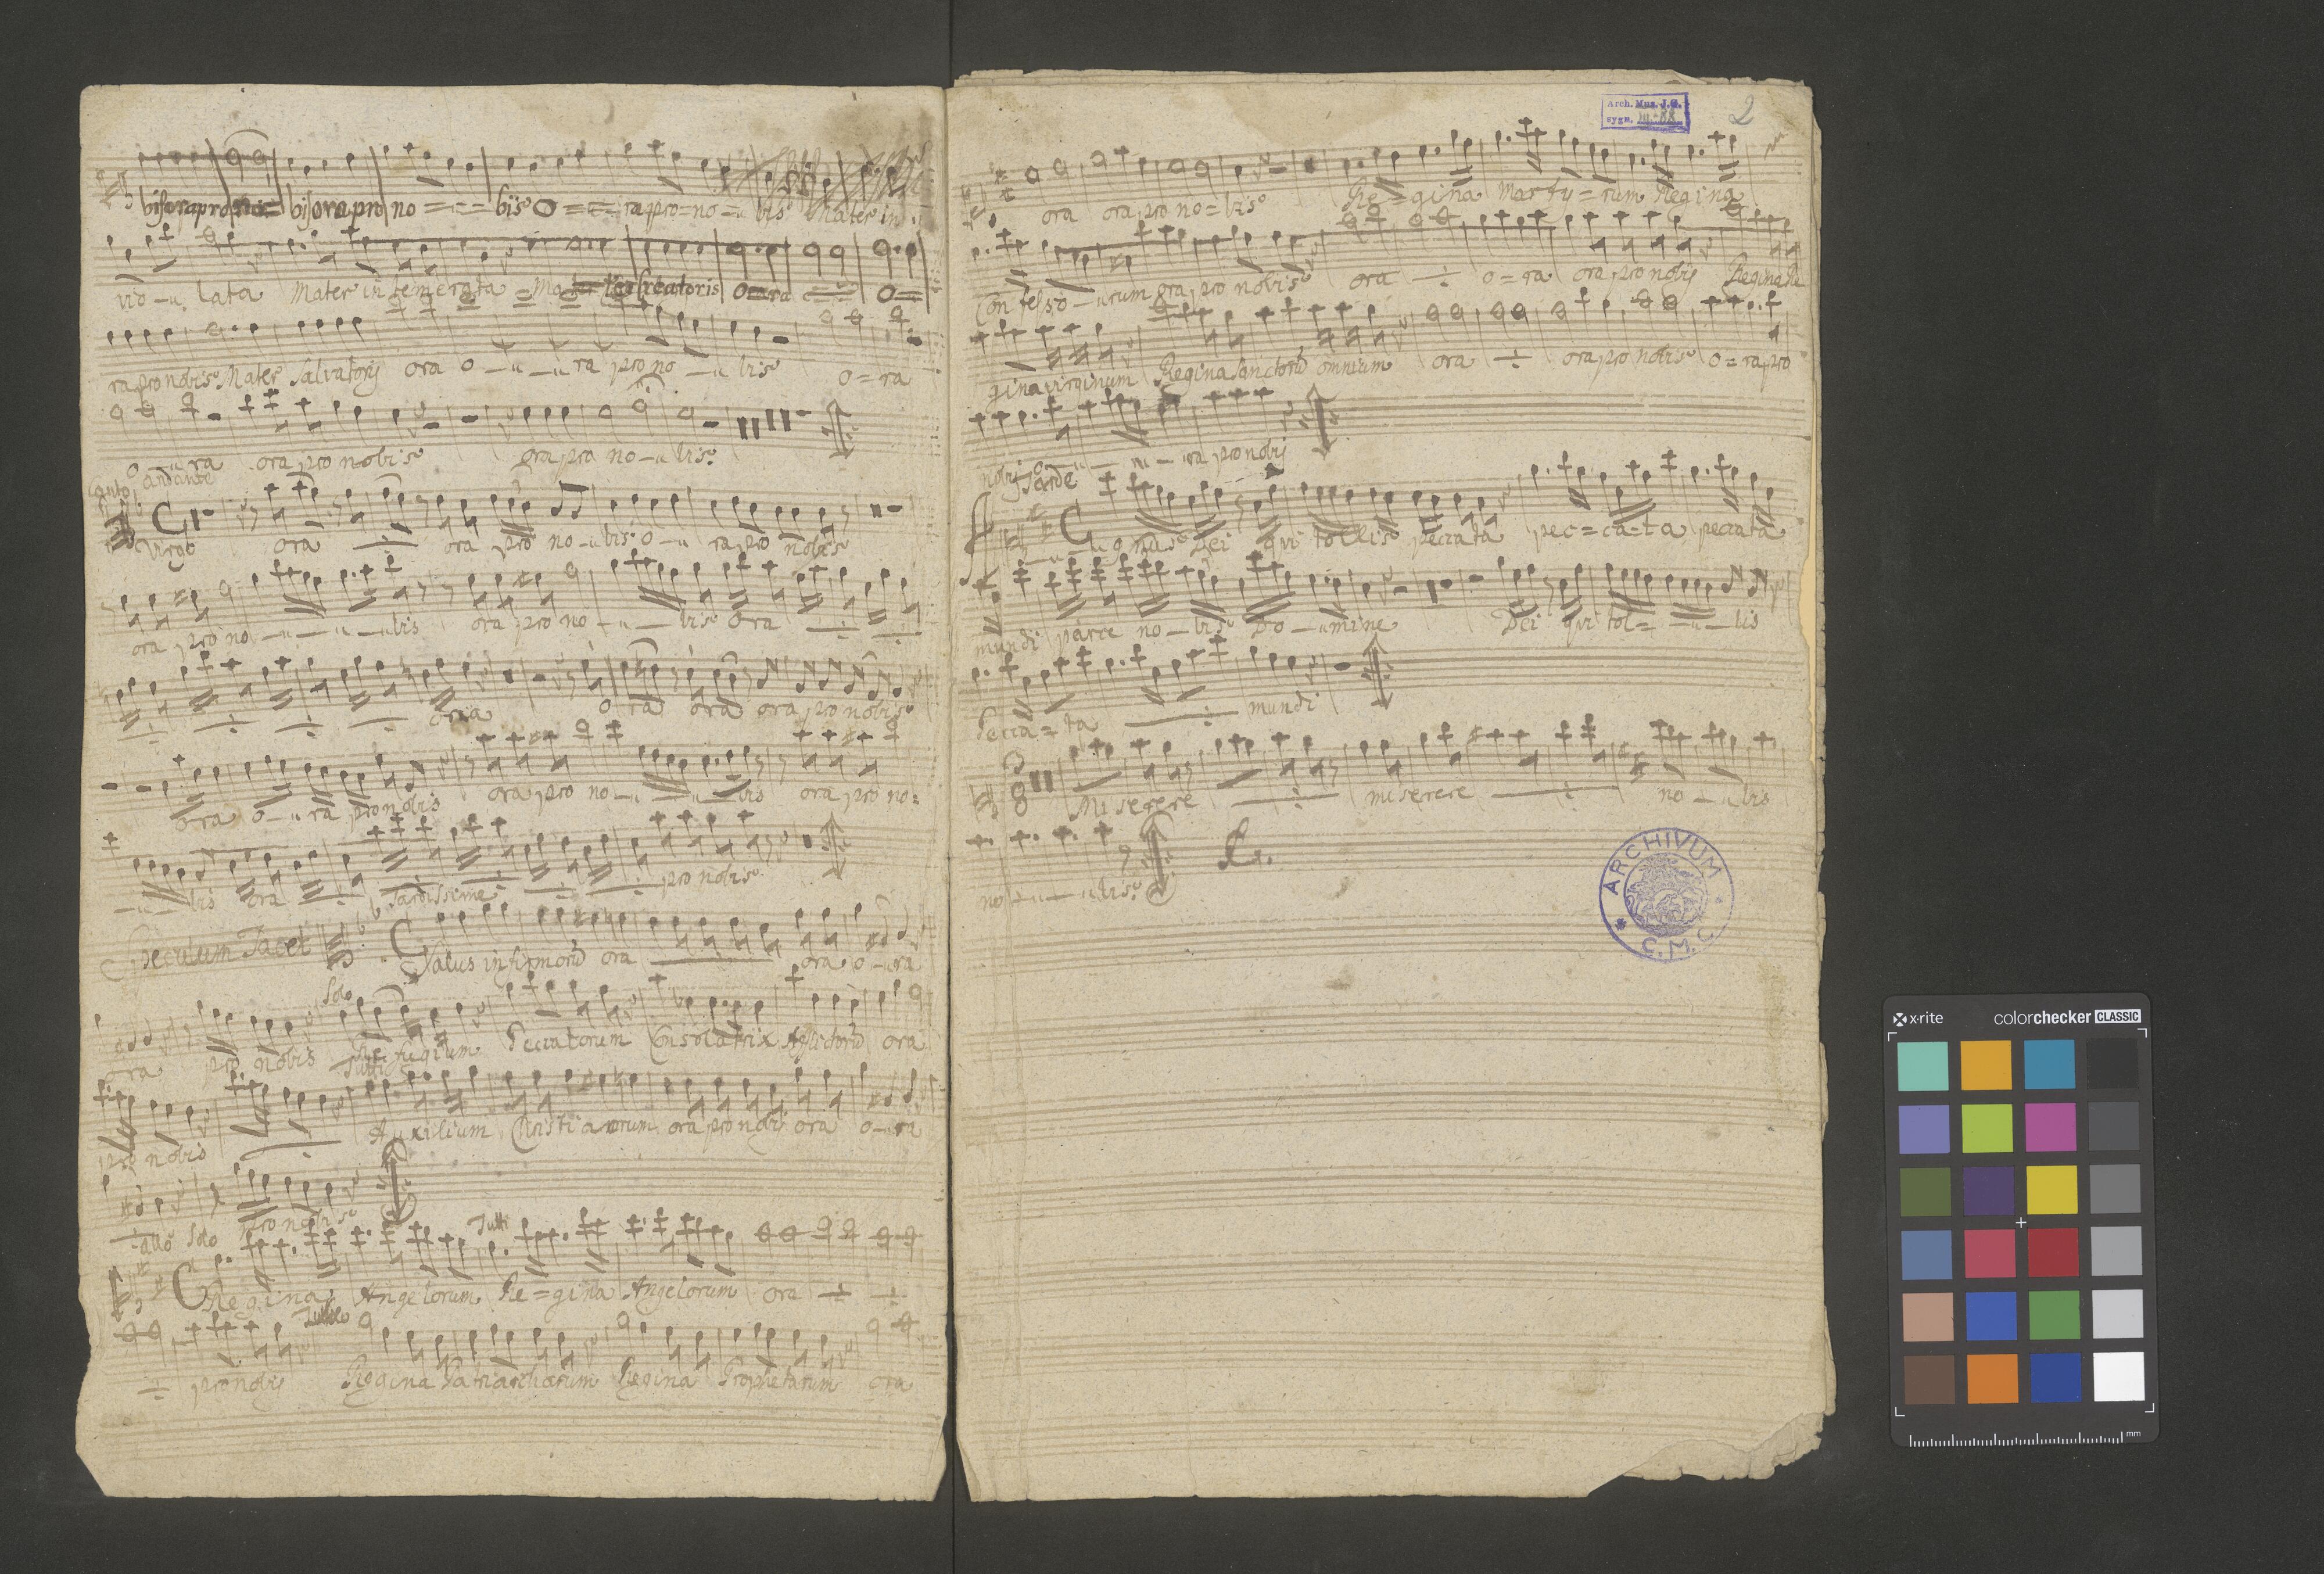 bis ora pro no = bis ora pro no = = = bis O = = = ra pro = no = u bis Mater in
vio - u lata Mater in temerata = Mater Creatoris O = ra = = O =
ra pro nobis Mater Salvatoris ora o - u - u ra pro no - u bis o = ra
o - u ra ora pro nobis ora pro no - u bis
Canto andante
Virgo ora ÷ ora pro no - u bis o - u ra pro nobis
ora pro no - u - u - u bis ora pro no - u - bis ora ÷ ÷
÷ ÷ ÷ ÷ ora o ra ora ora pro nobis
ora o - u ra pro nobis ora pro no - u - u - bis ora pro no =
- u - bis ora ÷ ÷ ÷ ÷ pro nobis
Tardissime
Speculum Tacet Salus infirmorū ora ora o - u ra
Solo
ora pro nobis Refugium Peccatorum Consolatrix Aflictorū ora
Tutti
pro nobis ÷ Auxilium Christianorum ora pro nobis ora o - u ra
÷ pro nobis
allo Solo Tutti
Regina Angelorum Re = gina Angelorum ora ÷ ÷
÷ pro nobis Regina Patriarcharum Regina Prophetarum ora
Arch. Mus. J.G.
sygn. III-88
2
ora ora pro no = bis Re = gina Marty = rum Regina
Confesso - u rum ora pro nobis ora ÷ o = ra ora pro nobis Regina Re
gina virginum Regina Sanctorū omnium ora ÷ ora pro nobis o = ra pro
nobis o - u - u - ra pro nobis
Tarde
A - u - u gnus Dei qui tollis peccata pec = ca = ta peccata
mundi parce no - bis Do - u mine Dei qui tol = - u - lis
Pecca = ta ÷ mundi
3 8 Miserere ÷ miserere ÷ no - u bis
no - u - u bis
ARCHIVUM C.M.C.
x-rite colorchecker CLASSIC
mm